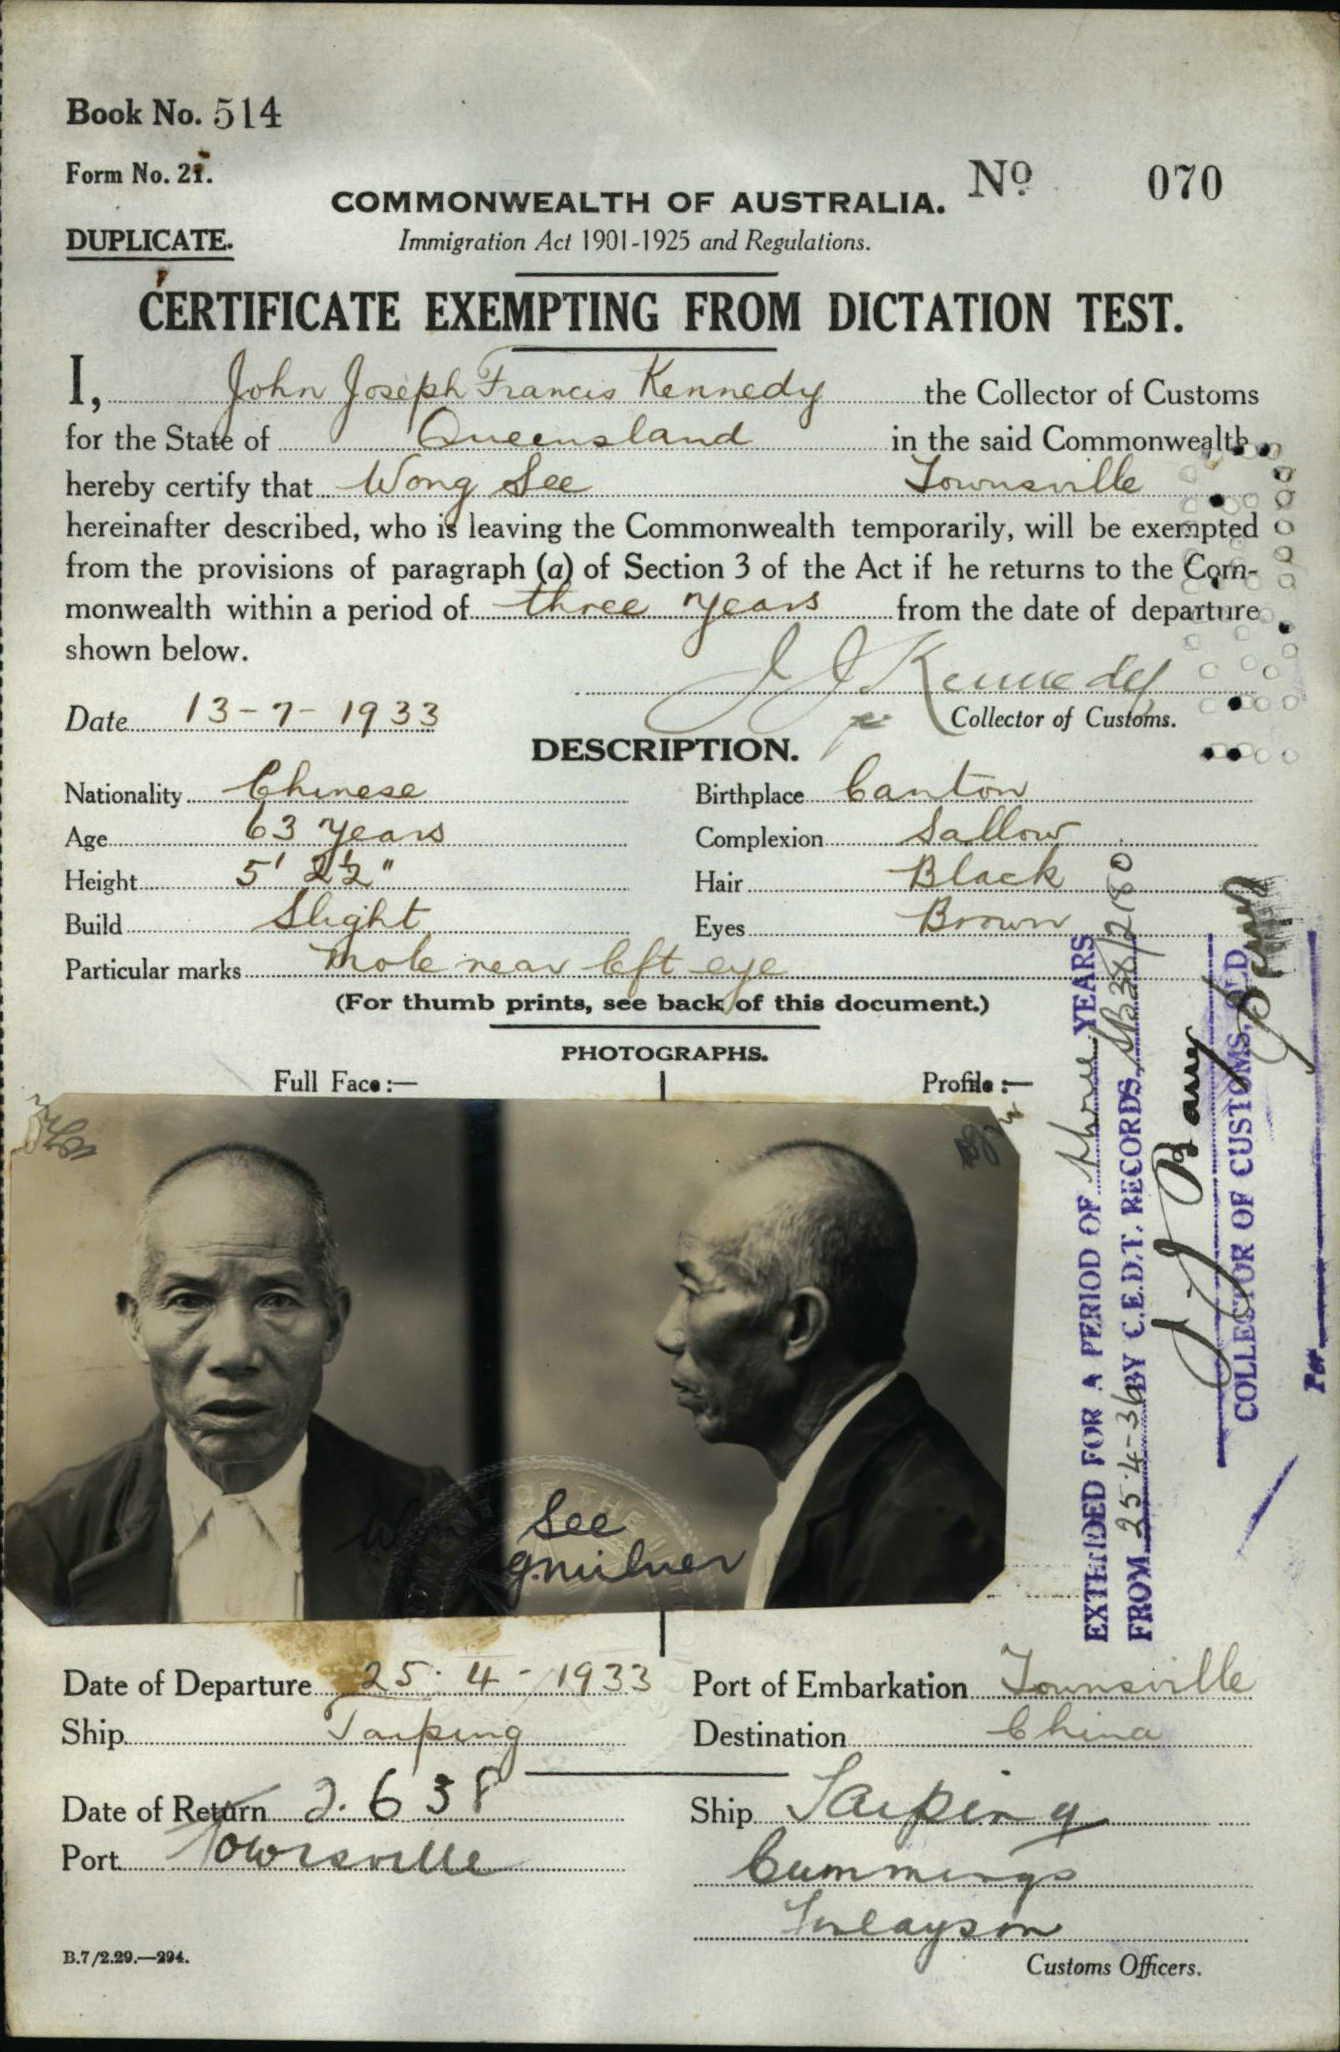 Book No. 514
Form No. 21.
No 070
COMMONWEALTH OF AUSTRALIA.
DUPLICATE.
Immigration Act 1901-1925 and Regulations.
CERTIFICATE EXEMPTING FROM DICTATION TEST.
I, John Joseph Francis Kennedy the Collector of Customs
for the State of Queensland in the said Commonwealth
hereby certify that Wong See Townsville
hereinafter described, who is leaving the Commonwealth temporarily, will be exempted
from the provisions of paragraph (a) of Section 3 of the Act if he returns to the Com-
monwealth within a period of three years from the date of departure
shown below.
J J Kennedy
Date 13-7-1933
Collector of Customs.
DESCRIPTION.
Nationality Chinese Birthplace Canton
Age 63 years Complexion Sallow
Height 5' 2½" Hair Black
Build Slight Eyes Brown
Particular marks Mole near left eye
(For thumb prints, see back of this document.)
PHOTOGRAPHS.
Full Face:— Profile:—
Wong See
G. Milner
EXTENDED FOR A PERIOD OF three YEARS
FROM 25-4-36 BY C.E.D.T. RECORDS
COLLECTOR OF CUSTOMS, QLD
Per
Date of Departure 25.4-1933 Port of Embarkation Townsville
Ship Taiping Destination China
Date of Return 2.6 38 Ship Taiping
Port Townsville Cummings
Finlayson
B.7/2.29.—294.
Customs Officers.